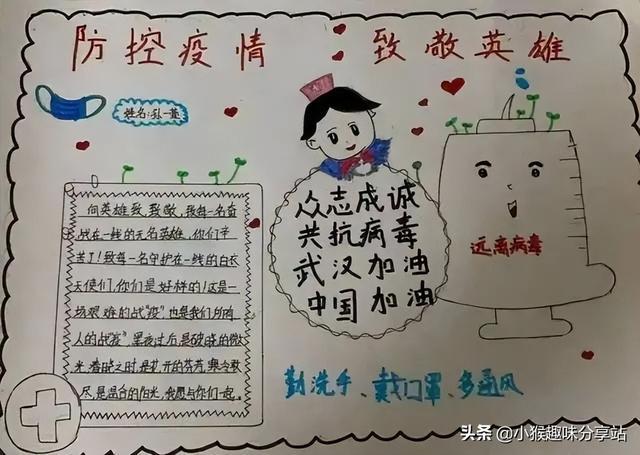 防控疫情 致敬英雄
姓名:孙一萱
向英雄致敬,致敬每一名奋
战在一线的无名英雄,你们辛
苦了!致每一名守护在一线的白衣
天使们,你们是好样的!这是一
场艰难的战"疫"也是我们所有
人的战疫"黑夜过后,是破晓的微
光,着晓之时,是花开的芬芳,寒冬散
尽,是温合的阳光,我愿与你们一起。
众志成诚
共抗病毒
武汉加油
中国加油
远离病毒
勤洗手、戴口罩、多通风
头条 @小猴趣味分享站